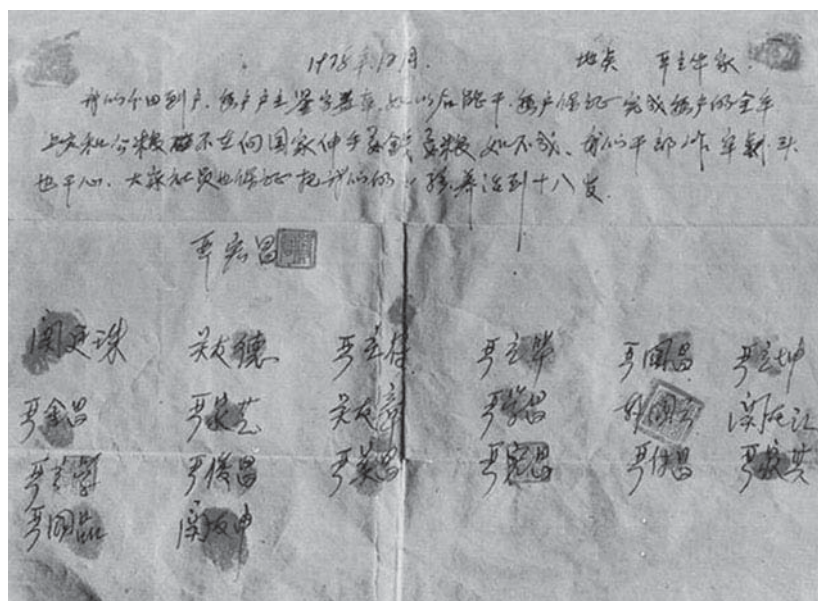 1978年12月. 地点 严立华家.
我们分田到户,每户户主签字盖章,如以后能干,每户保证完成每户的全年
上交和公粮不在向国家伸手要钱要粮,如不成,我们干部作牢剎头
也干心,大家社员也保证把我们的小孩养活到十八岁.
严宏昌
关廷珠 关友德 严立符 严立华 严国昌 严立坤
严金昌 严家芝 关友章 严学昌 韩国云 关友江
严立学 严俊昌 严美昌 严宏昌 严付昌 严家其
严国品 关友申